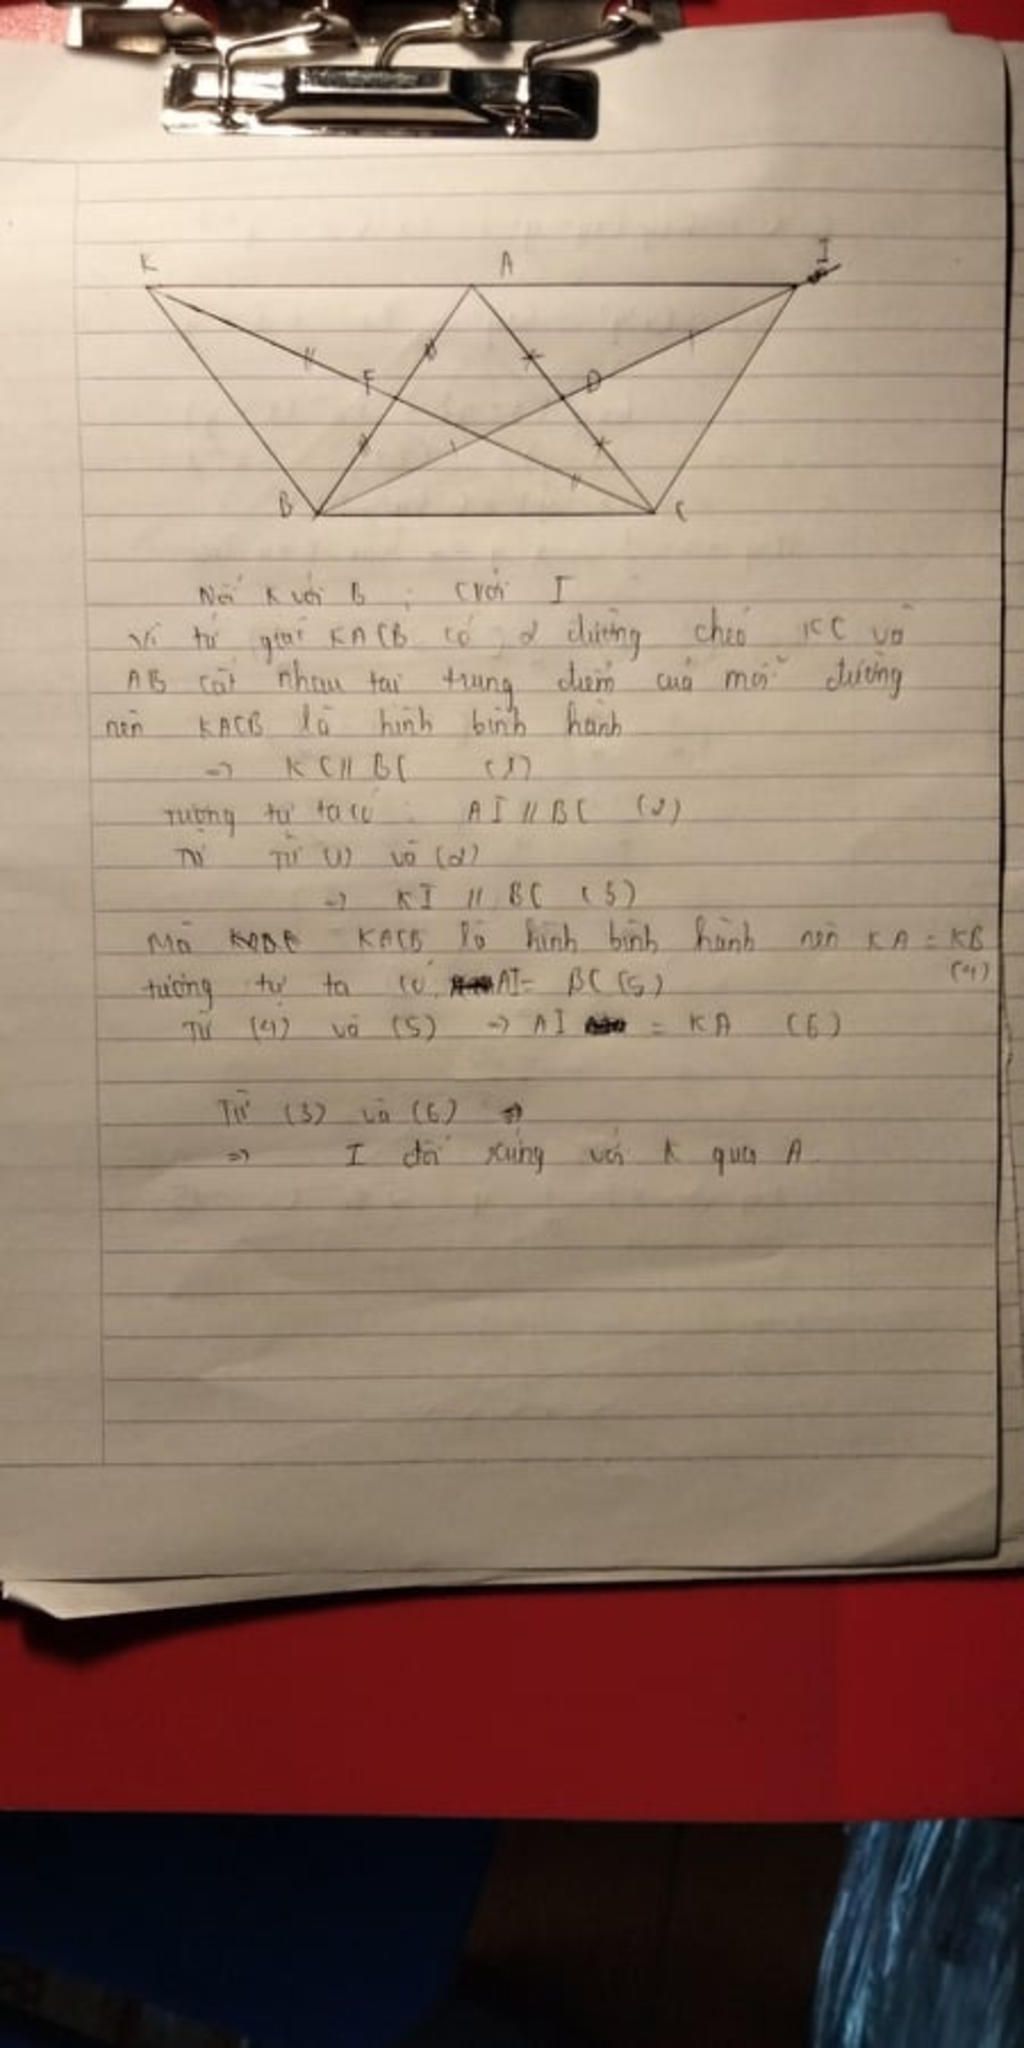 K A I
F D
B C
Nối K với B ; C với I
Vì tứ giác KACB có 2 đường chéo KC và
AB cắt nhau tại trung điểm của mỗi đường
nên KACB là hình bình hành
=> K C // BC (1)
tương tự ta có : AI // BC (2)
Từ Từ (1) và (2)
=> KI // BC (3)
Mà KACB là hình bình hành nên KA = KB
(4)
tương tự ta có AI = BC (5)
Từ (4) và (5) => AI = KA (6)
Từ (3) và (6) =>
=> I đối xứng với K qua A